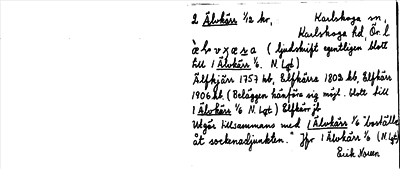 2 Älvkärr 1/12 kr, Karlskoga sn,
Karlskoga hd, Ör. l
(ljudskrift egentligen blott
till 1 Älvkärr 1/6. N. Lgt)
Älfkjärr 1757 kb, Elfkärra 1802 kb, Elfkärr
1906 kk, (Beläggen hänföra sig möjl. blott till
1 Älvkärr 1/6 N. Lgt) Elfkärr jb
Utgör tillsammans med 1 Älvkärr 1/6 "boställe
åt sockenadjunkten." Jfr 1 Älvkärr 1/6 (N. Lgt)
Erik Noreen